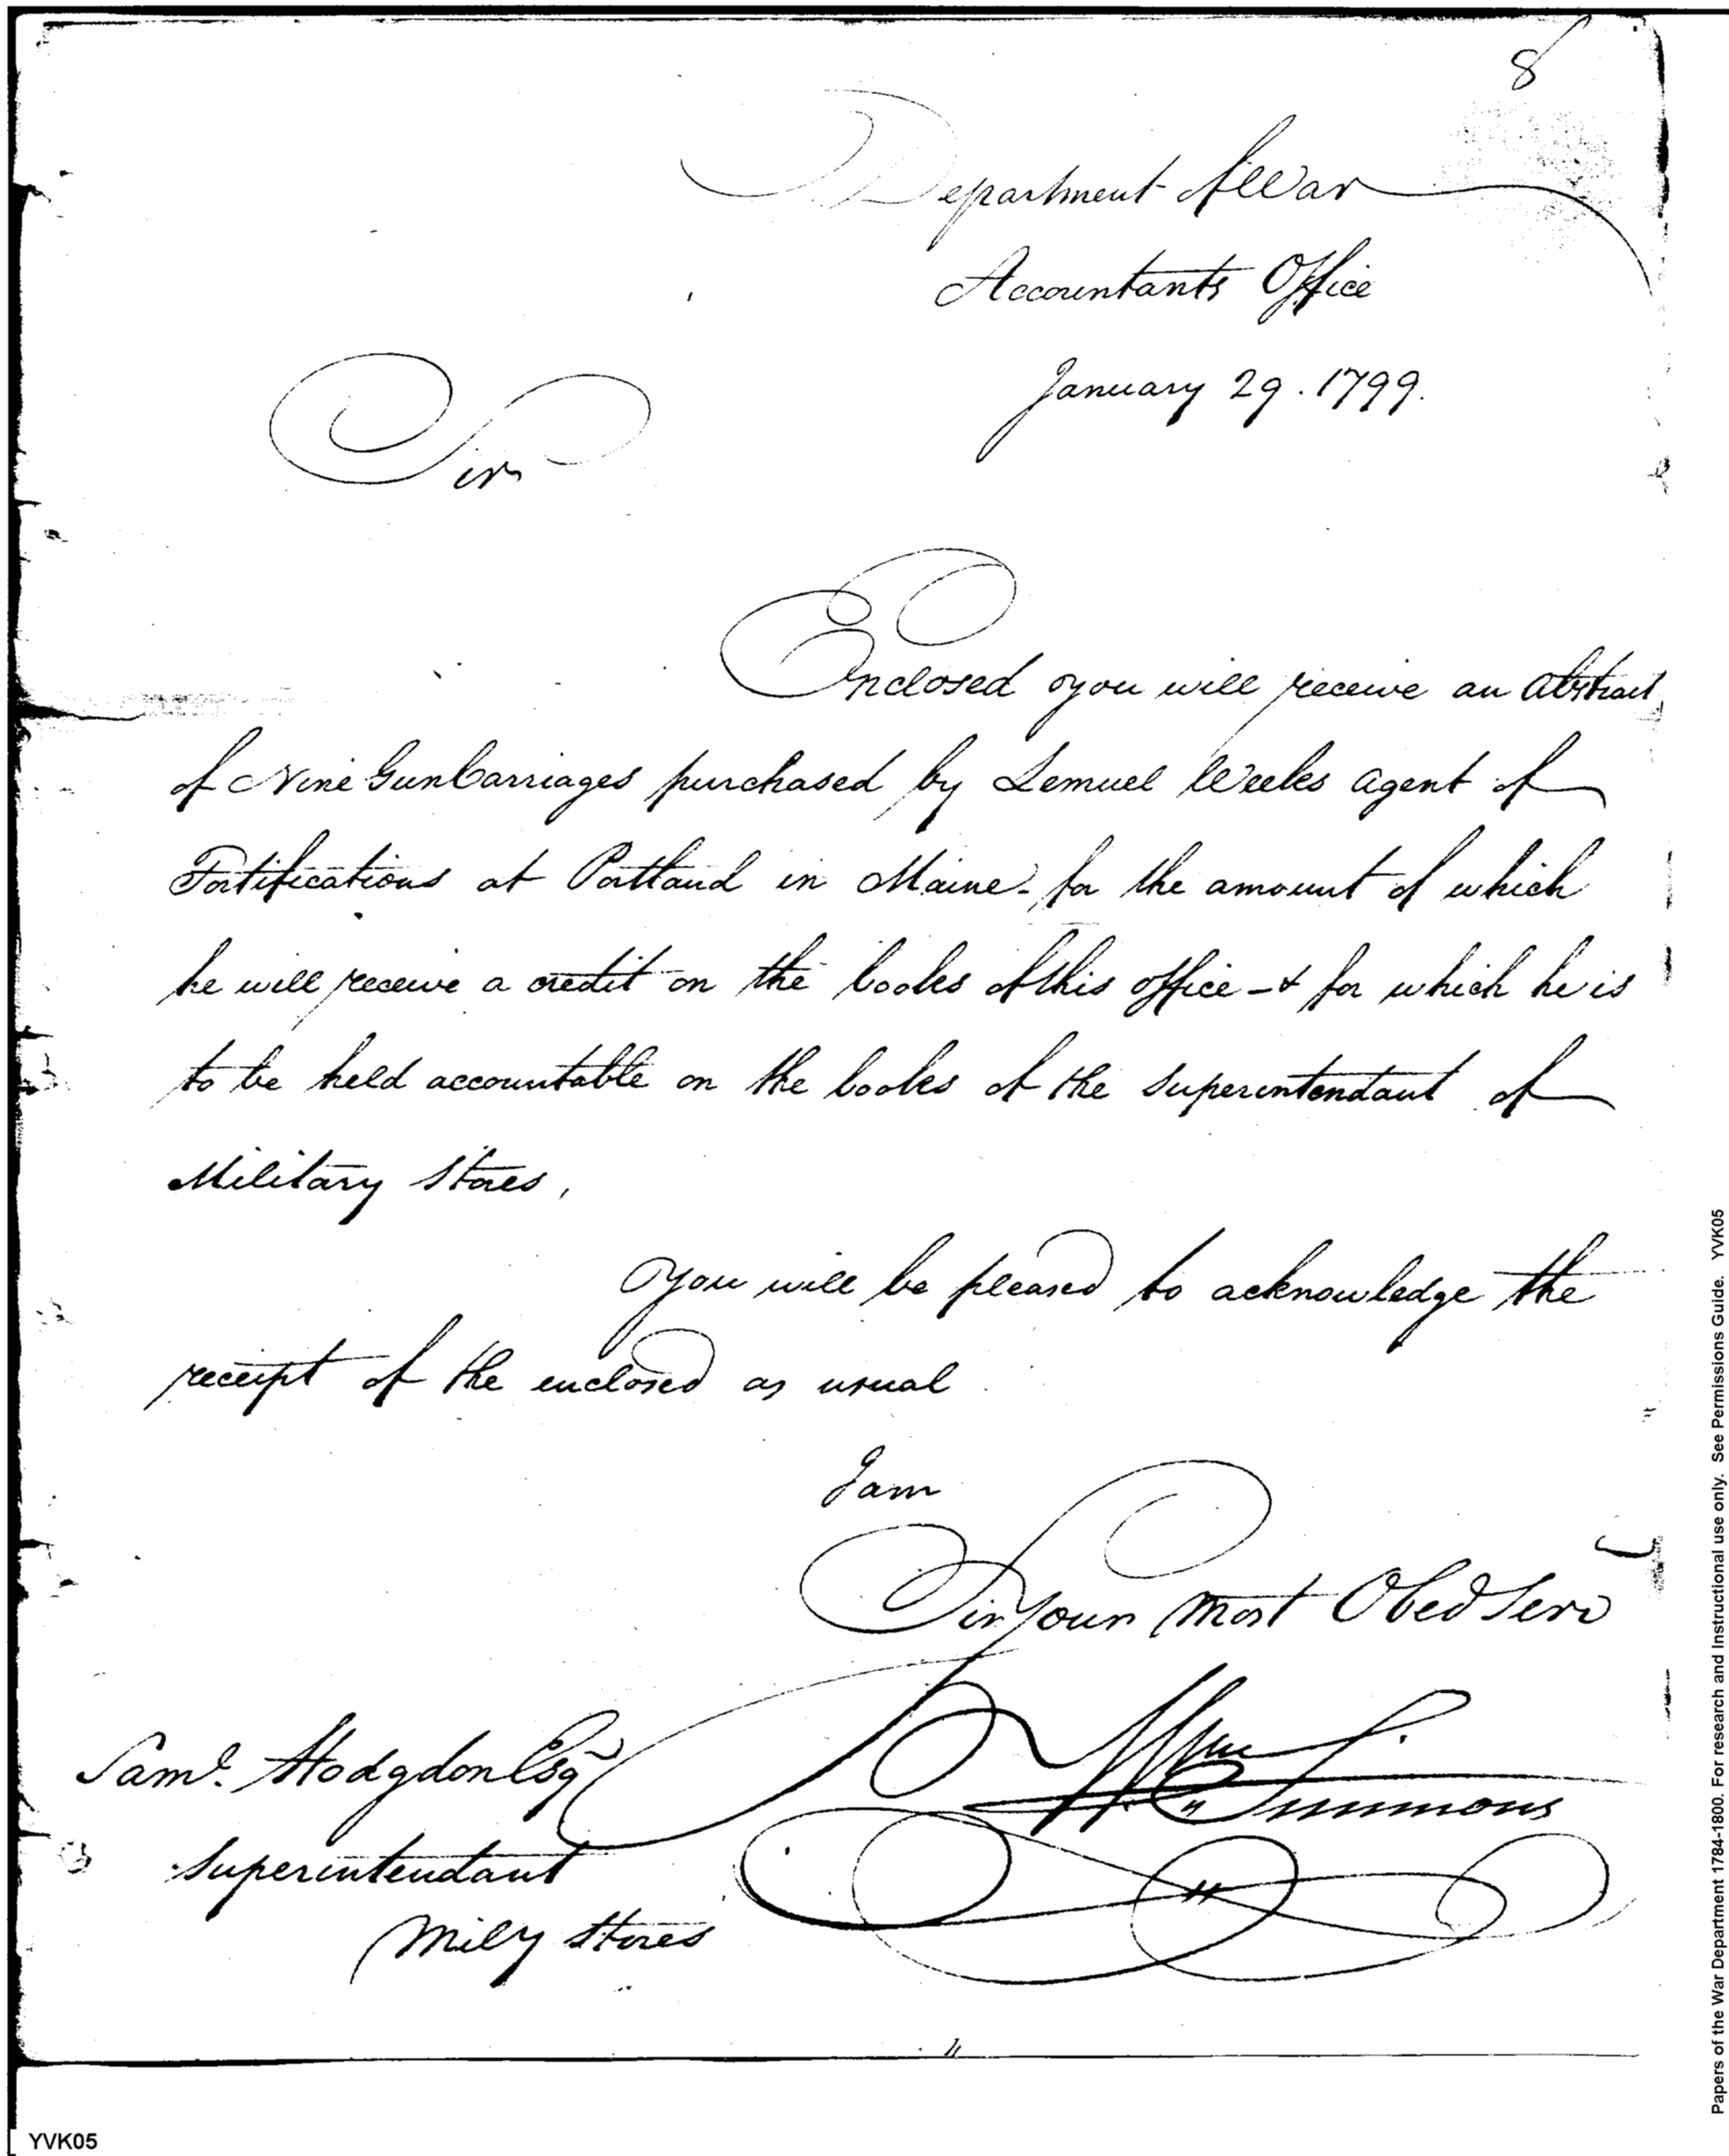 8
Department of War
Accountants Office
January 29. 1799.
Sir
Enclosed you will receive an Abstract
of Nine Gun Carriages purchased by Lemuel Weeks agent of
Fortifications at Portland in Maine - for the amount of which
he will receive a credit on the books of this office - & for which he is
to be held accountable on the books of the Superintendant of
Military Stores,
You will be pleased to acknowledge the
receipt of the enclosed as usual
I am
Sir Your most Obed Serv
Wm Simmons
Saml. Hodgdon Esqr
Superintendant
Mily Stores
YVK05
Papers of the War Department 1784-1800. For research and Instructional use only. See Permissions Guide. YVK05